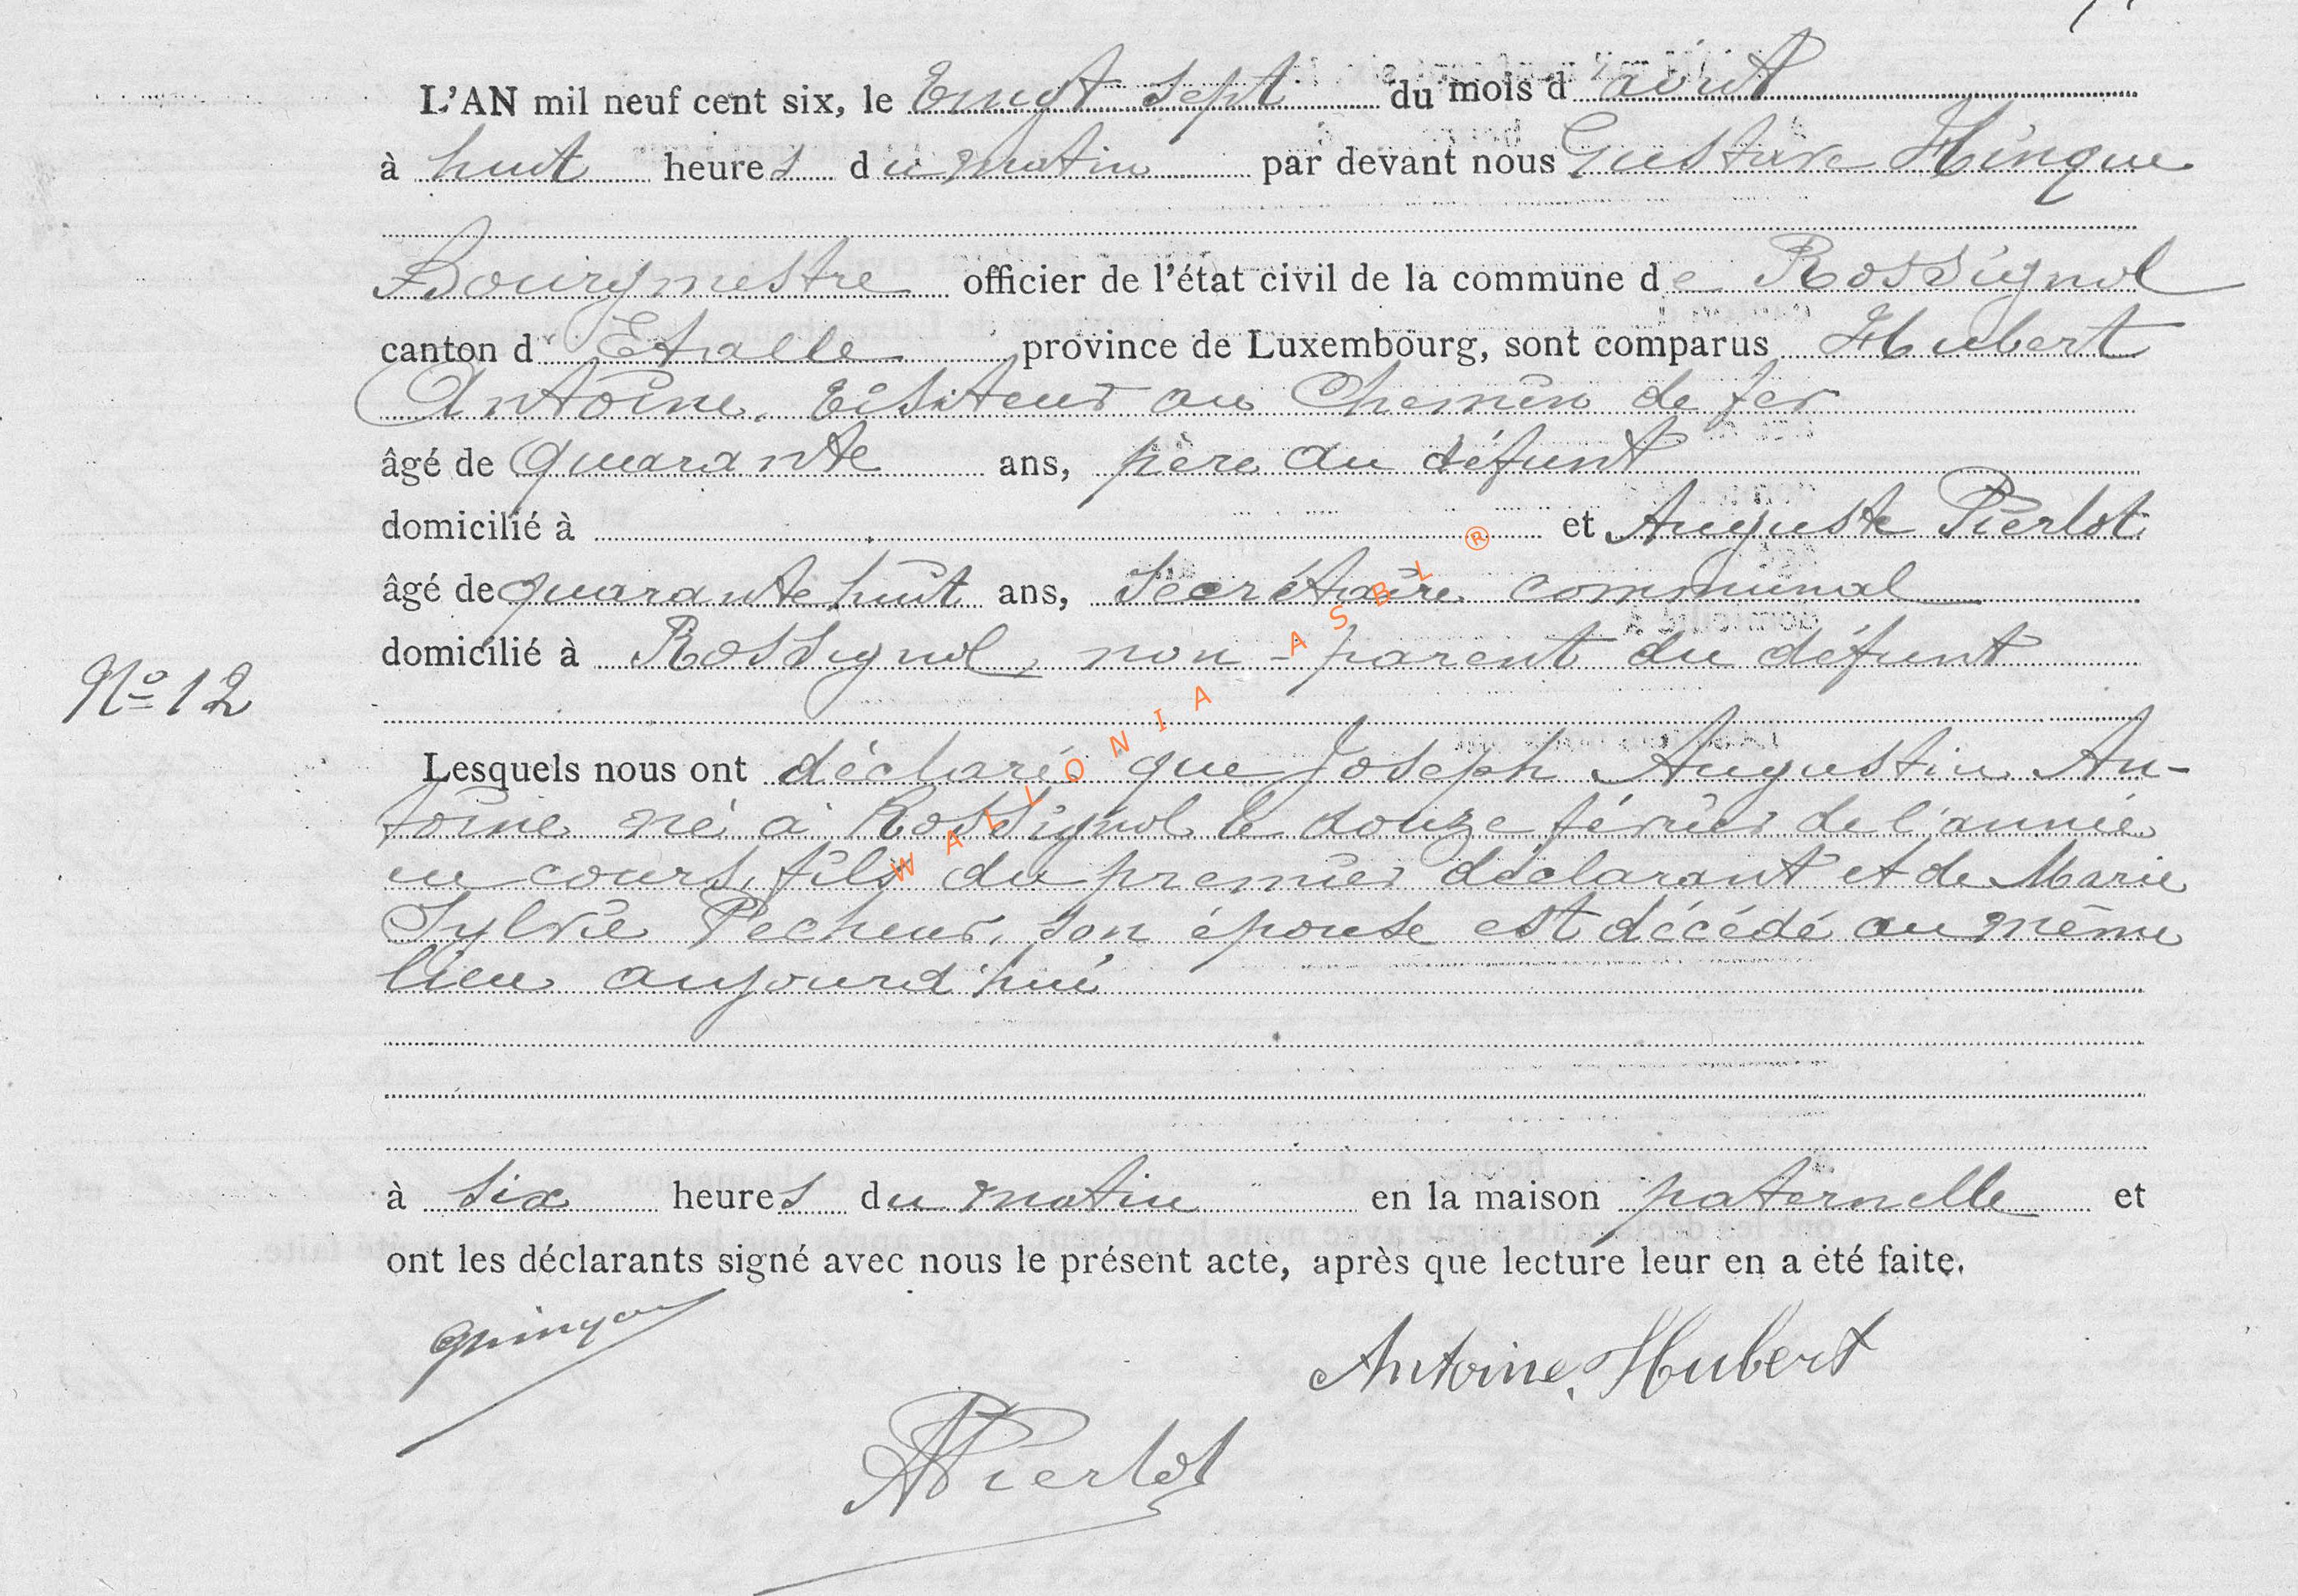 L'AN mil neuf cent six, le vingt sept du mois d'août
à huit heures du matin par devant nous Gustave Hinque
Bourgmestre officier de l'état civil de la commune de Rossignol
canton d'Etalle province de Luxembourg, sont comparus Hubert
Antoine, visiteur au Chemin de fer
âgé de quarante ans, père du défunt
domicilié à et Auguste Pierlot
âgé de quarante huit ans, secrétaire communal
domicilié à Rossignol, non-parent du défunt
N° 12
Lesquels nous ont déclaré que Joseph Augustin An-
toine né à Rossignol le douze février de l'année
en cours, fils du premier déclarant et de Marie
Sylvie Pecheur, son épouse est décédé au même
lieu aujourd'hui
à six heures du matin en la maison paternelle et
ont les déclarants signé avec nous le présent acte, après que lecture leur en a été faite.
Antoine, Hubert
APierlot
WALLONIA ASBL ®